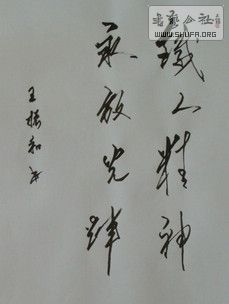 書藝公社
WWW.SHUFA.ORG
鐵人精神
永放光辉
王振和